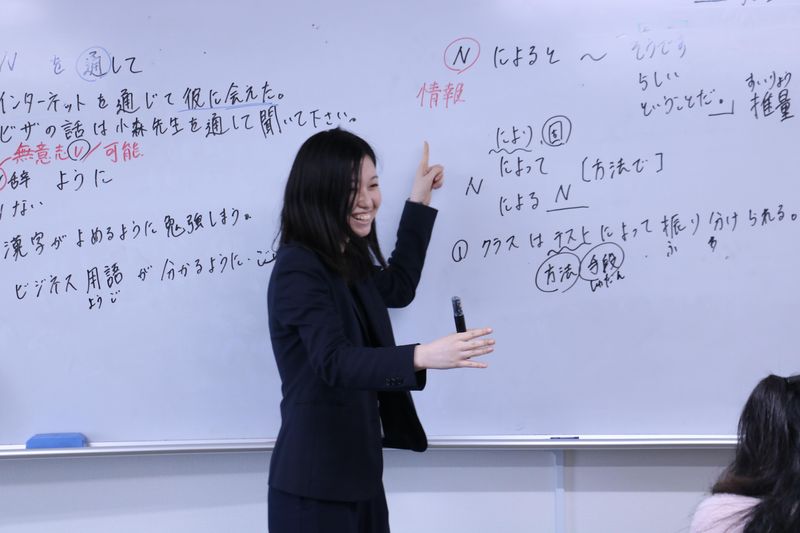 N を通して
インターネットを通じて彼に会えた。
ビザの話は小森先生を通して聞いて下さい。
無意志V 可能
辞 ように
ない
漢字がよめるように勉強しまう。
ビジネス用語が分かるように
ようご
N によると ～ そうです
情報
らしい
ということだ。」推量
すいりょう
により,
N によって [方法で]
による N
① クラスはテストによって振り分けられる。
ふ わ
方法 手段
しゅだん